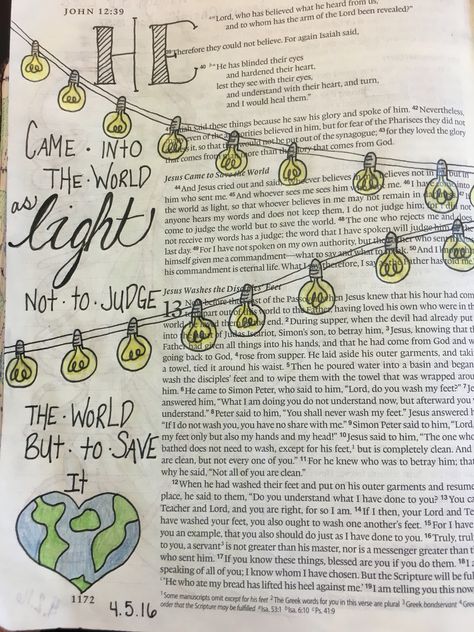 JOHN 12:39
HE
CAME · INTO
THE · WORLD
as
light
NOT · TO · JUDGE
THE · WORLD
BUT · TO · SAVE
It
"Lord, who has believed what he heard from us,
and to whom has the arm of the Lord been revealed?"
39 Therefore they could not believe. For again Isaiah said,
40 "He has blinded their eyes
and hardened their heart,
lest they see with their eyes,
and understand with their heart, and turn,
and I would heal them."
said these things because he saw his glory and spoke of him. 42 Nevertheless,
of the authorities believed in him, but for fear of the Pharisees they did not
it, so that they would not be put out of the synagogue; 43 for they loved the glory
that comes from more than the glory that comes from God.
Jesus Came to Save the World
44 And Jesus cried out and said, "Whoever believes in me, believes not in me but in
him who sent me. 45 And whoever sees me sees him who sent me. 46 I have
the world as light, so that whoever believes in me may not remain in
anyone hears my words and does not keep them, I do not judge him; for I did not
come to judge the world but to save the world. 48 The one who rejects me and
not receive my words has a judge; the word that I have spoken will judge him
last day. 49 For I have not spoken on my own authority, but the Father who
himself given me a commandment—what to say and what to speak. 50 And I
his commandment is eternal life. What I say, therefore, I say as the Father has told me."
Jesus Washes the Disciples' Feet
13 Now before the Feast of the Passover, when Jesus knew that his hour had come
to depart out of this world to the Father, having loved his own who were in the
world, he loved them to the end. 2 During supper, when the devil had already put
into the heart of Judas Iscariot, Simon's son, to betray him, 3 Jesus, knowing that the
Father had given all things into his hands, and that he had come from God and was
going back to God, 4 rose from supper. He laid aside his outer garments, and taking
a towel, tied it around his waist. 5 Then he poured water into a basin and began to
wash the disciples' feet and to wipe them with the towel that was wrapped around
him. 6 He came to Simon Peter, who said to him, "Lord, do you wash my feet?" 7 Jesus
answered him, "What I am doing you do not understand now, but afterward you will
understand." 8 Peter said to him, "You shall never wash my feet." Jesus answered him,
"If I do not wash you, you have no share with me." 9 Simon Peter said to him, "Lord, not
my feet only but also my hands and my head!" 10 Jesus said to him, "The one who has
bathed does not need to wash, except for his feet,1 but is completely clean. And you
are clean, but not every one of you." 11 For he knew who was to betray him; that was
why he said, "Not all of you are clean."
12 When he had washed their feet and put on his outer garments and resumed his
place, he said to them, "Do you understand what I have done to you? 13 You call me
Teacher and Lord, and you are right, for so I am. 14 If I then, your Lord and Teacher,
have washed your feet, you also ought to wash one another's feet. 15 For I have given
you an example, that you also should do just as I have done to you. 16 Truly, truly, I say
to you, a servant3 is not greater than his master, nor is a messenger greater than the one
who sent him. 17 If you know these things, blessed are you if you do them. 18 I am not
speaking of all of you; I know whom I have chosen. But the Scripture will be fulfilled,
'He who ate my bread has lifted his heel against me.' 19 I am telling you this now,
1 Some manuscripts omit except for his feet 2 The Greek words for you in this verse are plural 3 Greek bondservant 4 Greek
order that the Scripture may be fulfilled
a Isa. 53:1 b Isa. 6:10 c Ps. 41:9
1172
4.5.16